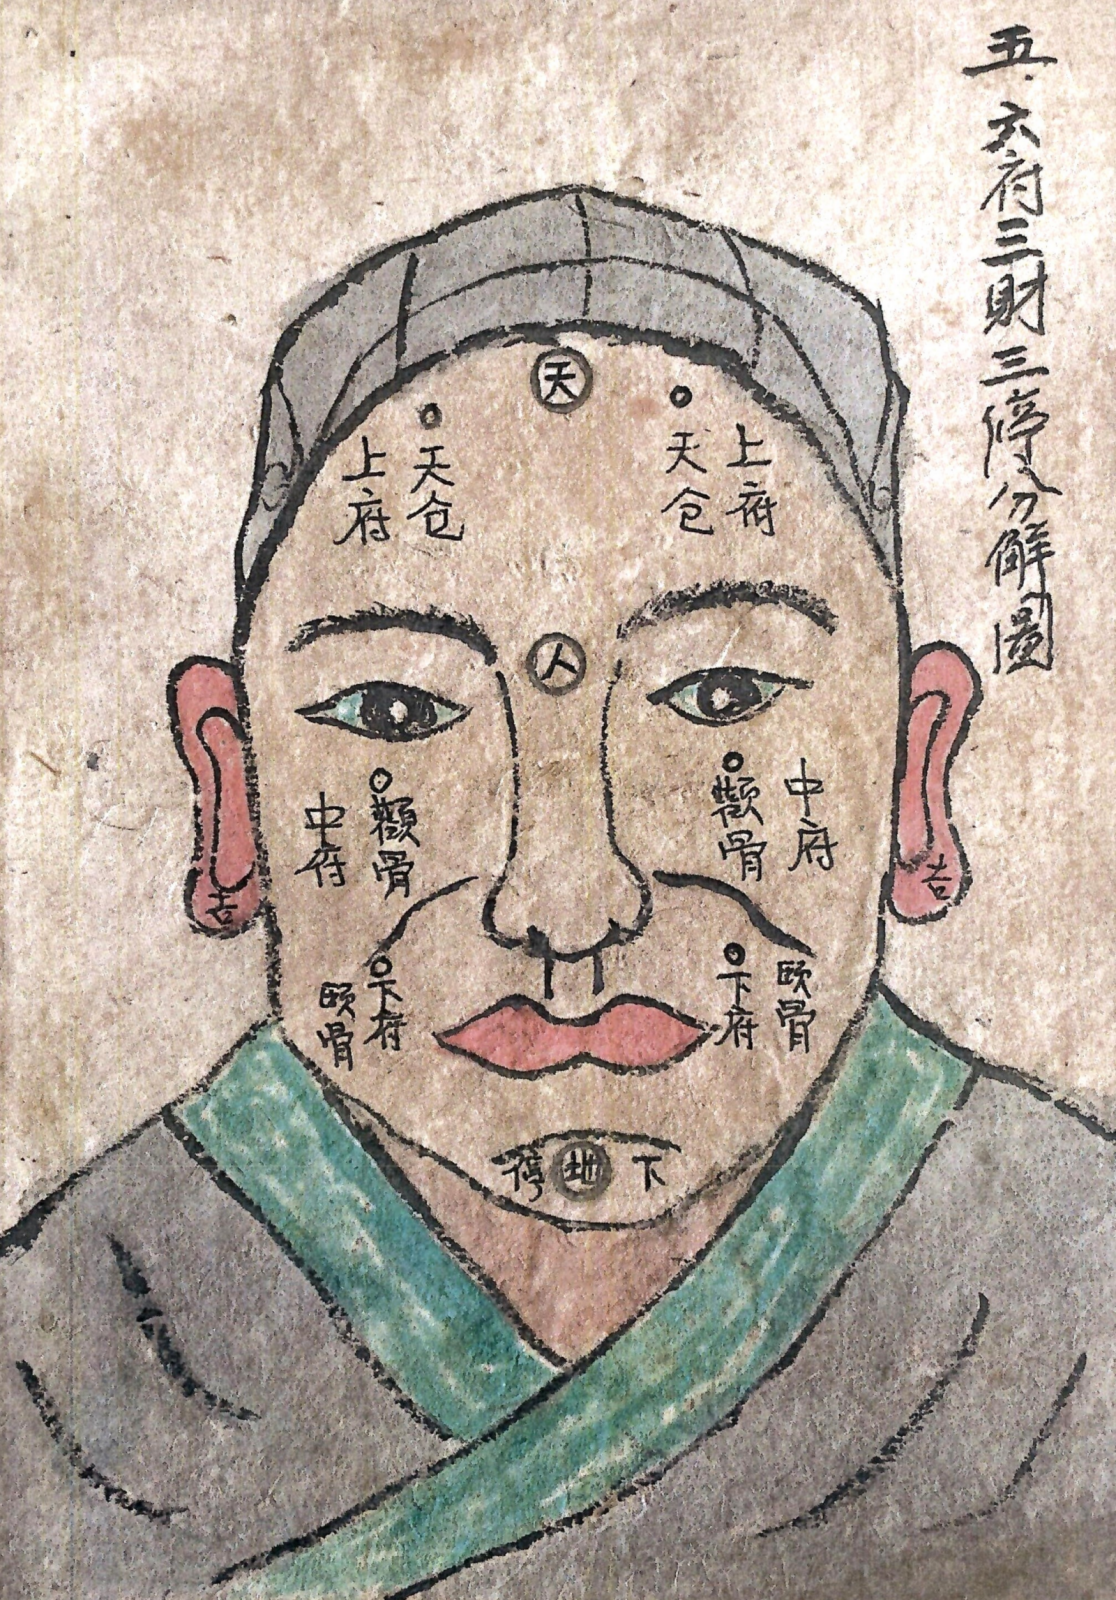 五.六府三財三停分解圖
天
上府
天仓
天仓
上府
人
中府
顴骨
顴骨
中府
吉
吉
頤骨
下府
下府
頤骨
停地下